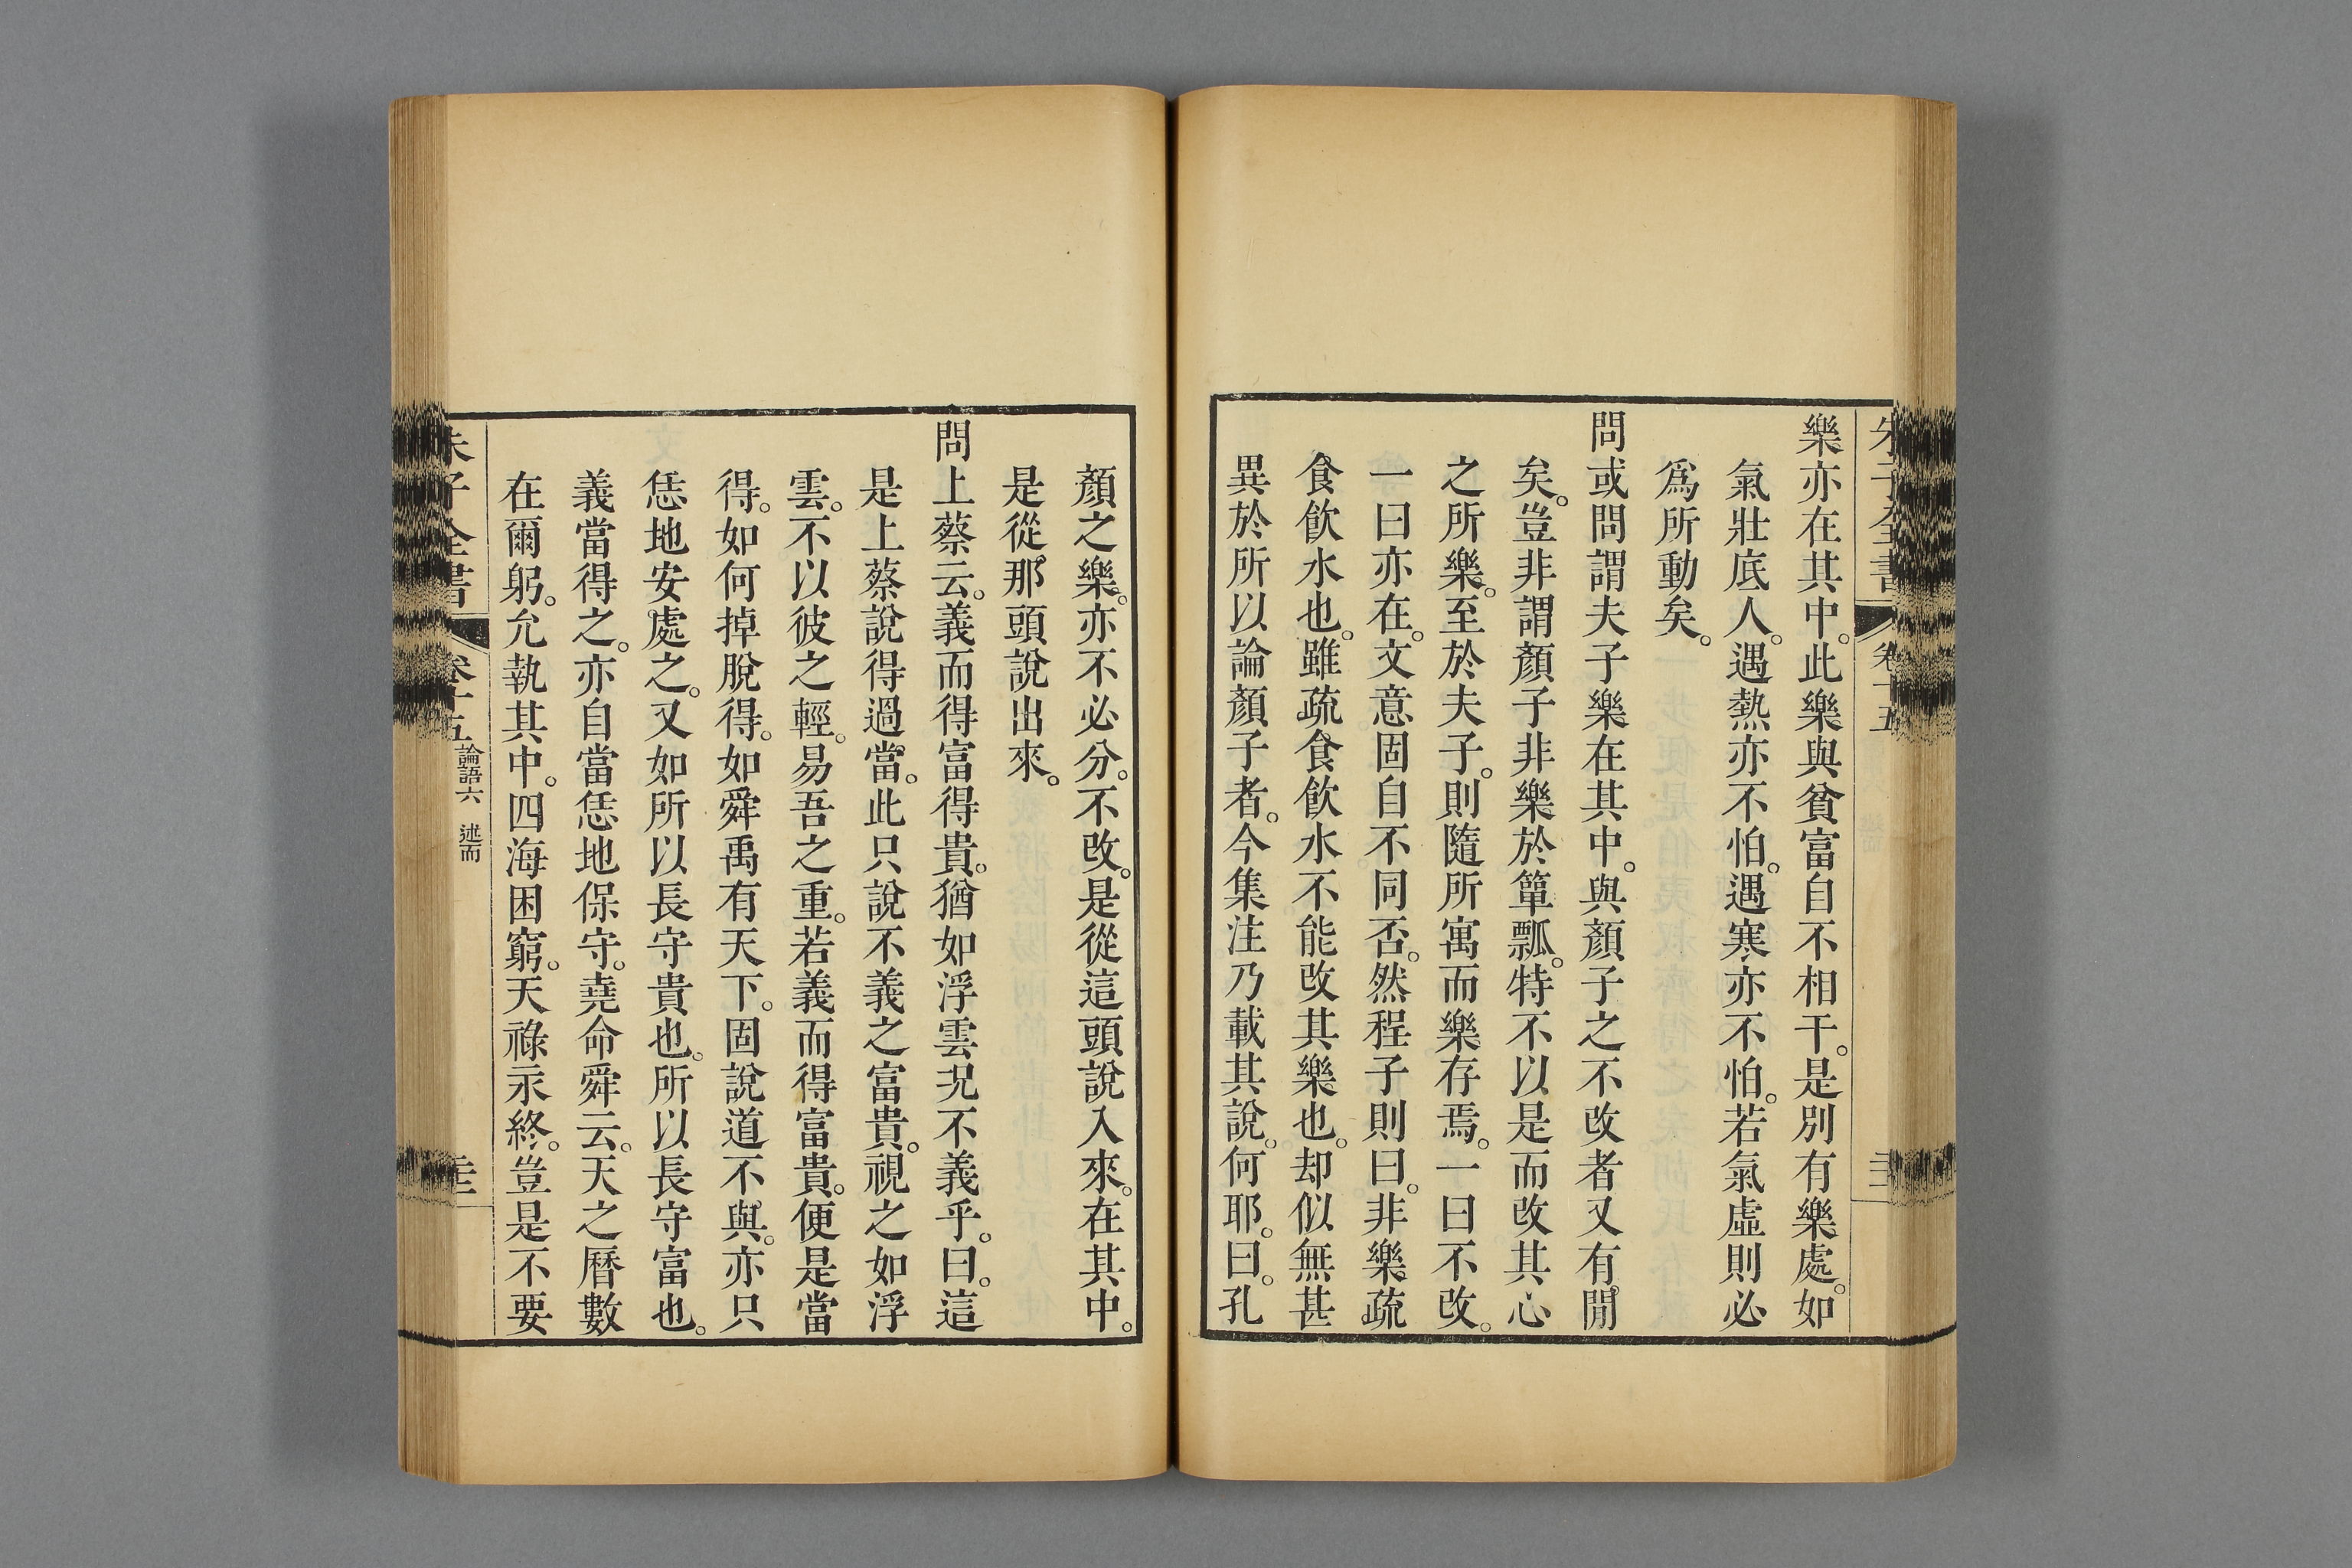 樂亦在其中。此樂與貧富自不相干。是別有樂處。如
氣壯底人。遇熱亦不怕。遇寒亦不怕。若氣虛則必
爲所動矣。
問或問謂夫子樂在其中。與顏子之不改者又有閒
矣。豈非謂顏子非樂於簞瓢。特不以是而改其心
之所樂。至於夫子。則隨所寓而樂存焉。一曰不改。
一曰亦在。文意固自不同否。然程子則曰。非樂疏
食飮水也。雖疏食飮水不能改其樂也。却似無甚
異於所以論顏子者。今集注乃載其說。何耶。曰。孔
顏之樂。亦不必分。不改。是從這頭說入來。在其中。
是從那頭說出來。
問上蔡云。義而得富得貴。猶如浮雲况不義乎。曰。這
是上蔡說得過當。此只說不義之富貴。視之如浮
雲。不以彼之輕。易吾之重。若義而得富貴。便是當
得。如何掉脫得。如舜禹有天下。固說道不與。亦只
恁地安處之。又如所以長守貴也。所以長守富也。
義當得之。亦自當恁地保守。堯命舜云。天之曆數
在爾躬。允執其中。四海困窮。天祿永終。豈是不要
朱子全書
卷十五
論語六 述而